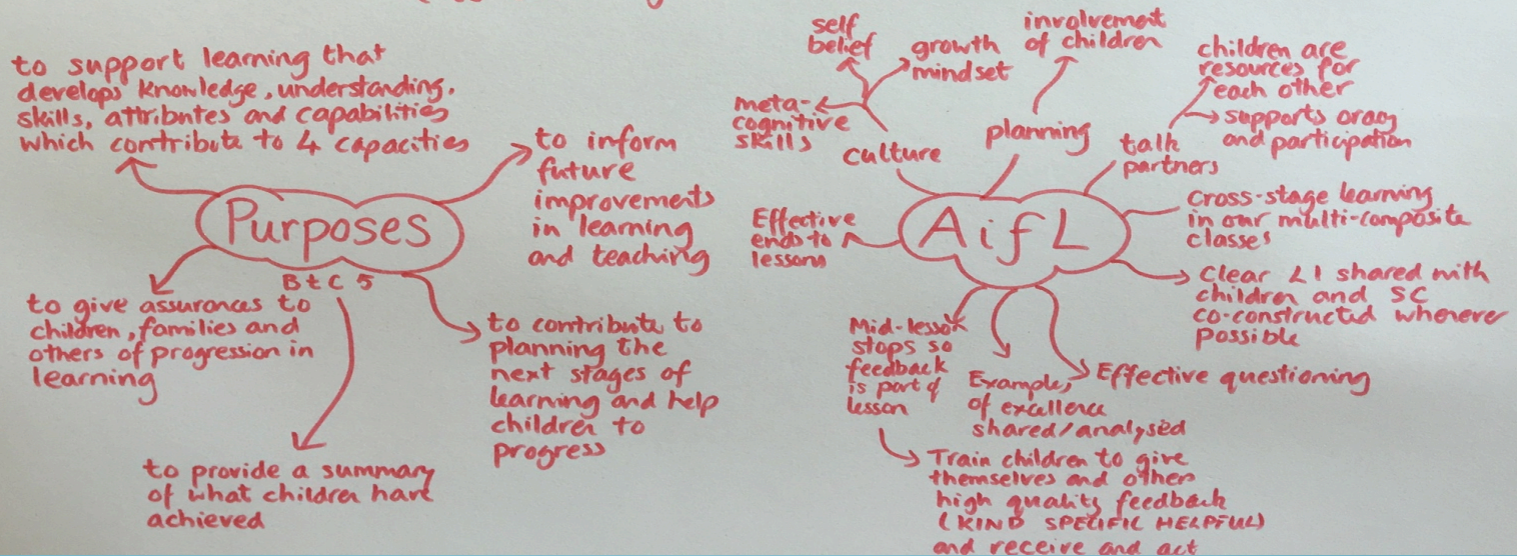 to support learning that
develops knowledge, understanding,
skills, attributes and capabilities
which contribute to 4 capacities
to inform
future
improvements
in learning
and teaching
Purposes
BtC 5
to give assurances to
children, families and
others of progression in
learning
to contribute to
planning the
next stages of
learning and help
children to
progress
to provide a summary
of what children have
achieved
self
belief
growth
mindset
meta-
cognitive
skills
culture
involvement
of children
planning
children are
resources for
each other
supports oracy
and participation
talk
partners
AifL
Effective
ends to
lessons
cross-stage learning
in our multi-composite
classes
Clear LI shared with
children and SC
co-constructed whenever
possible
Mid-lesson
stops so
feedback
is part of
lesson
Examples
of excellence
shared/analysed
Effective questioning
Train children to give
themselves and others
high quality feedback
(KIND SPECIFIC HELPFUL)
and receive and act